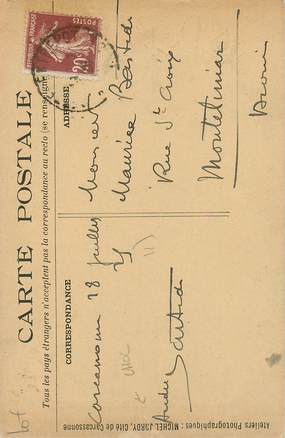 CARTE POSTALE
Tous les pays étrangers n'acceptent pas la correspondance au recto (se renseigner
CORRESPONDANCE
ADRESSE
Carcassonne 28 Juillet
André
Monsieur
Maurice
Rue St Croix
Montelimar
Drome
POSTES
20c
Lot
Ateliers Photographiques : MICHEL JORDY, Cité de Carcassonne